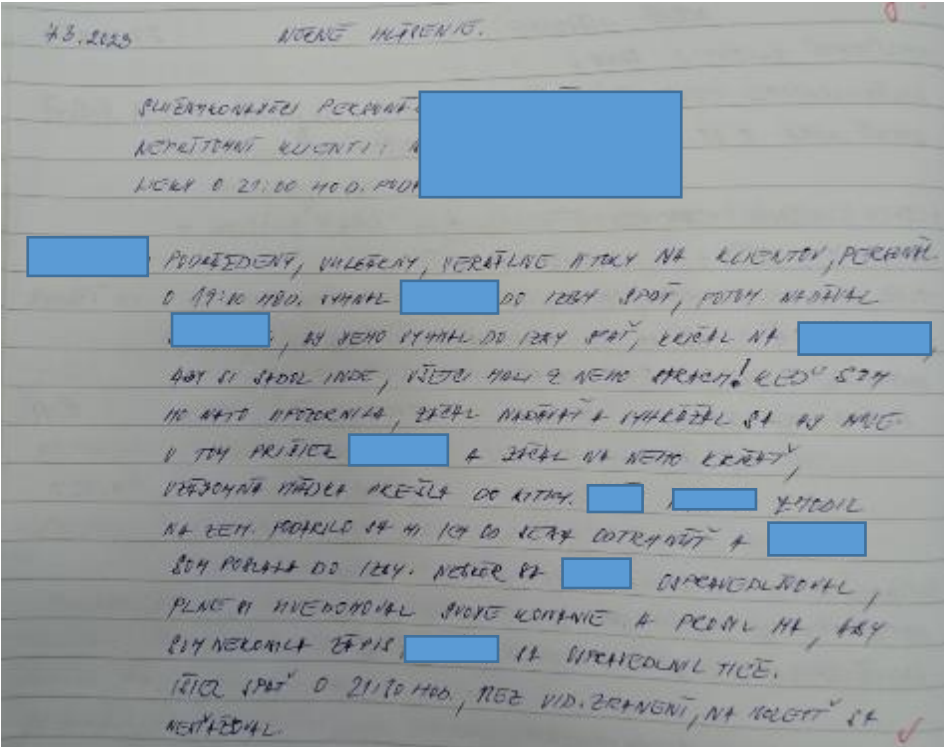 7.3.2023 NOČNÉ HLÁSENIE.
SLUŽBUKONAJÚCI PERSONÁ
NEPRÍTOMNÍ KLIENTI:
LIEKY O 21:00 HOD. PODA
PODRÁŽDENÝ, VULGÁRNY, VERBÁLNE ÚTOKY NA KLIENTOV, PERSONÁL.
O 19:10 HOD. VYHNAL DO IZBY SPAŤ, POTOM NADÁVAL
, AJ JEHO VYHNAL DO IZBY SPAŤ, KRIČAL NA ,
ABY SI SADOL INDE, VŠETCI MALI Z NEHO STRACH! KEĎ SOM
HO NATO UPOZORNILA, ZAČAL NADÁVAŤ A VYHRÁŽAL SA AJ MNE.
V TOM PRIŠIEL A ZAČAL NA NEHO KRIČAŤ,
VZÁJOMNÁ HÁDKA PREŠLA DO BITKY. ZHODIL
NA ZEM. PODARILO SA MI ICH OD SEBA ODTRHNÚŤ A
SOM POSLALA DO IZBY. NESKÔR SA OSPRAVEDLŇOVAL,
PLNE SI UVEDOMOVAL SVOJE KONANIE A PROSIL MA, ABY
SOM NEROBILA ZÁPIS. SA OSPRAVEDLNIL TIEŽ.
IŠIEL SPAŤ O 21:30 HOD., BEZ VID. ZRANENÍ, NA BOLESŤ SA
NESŤAŽOVAL.